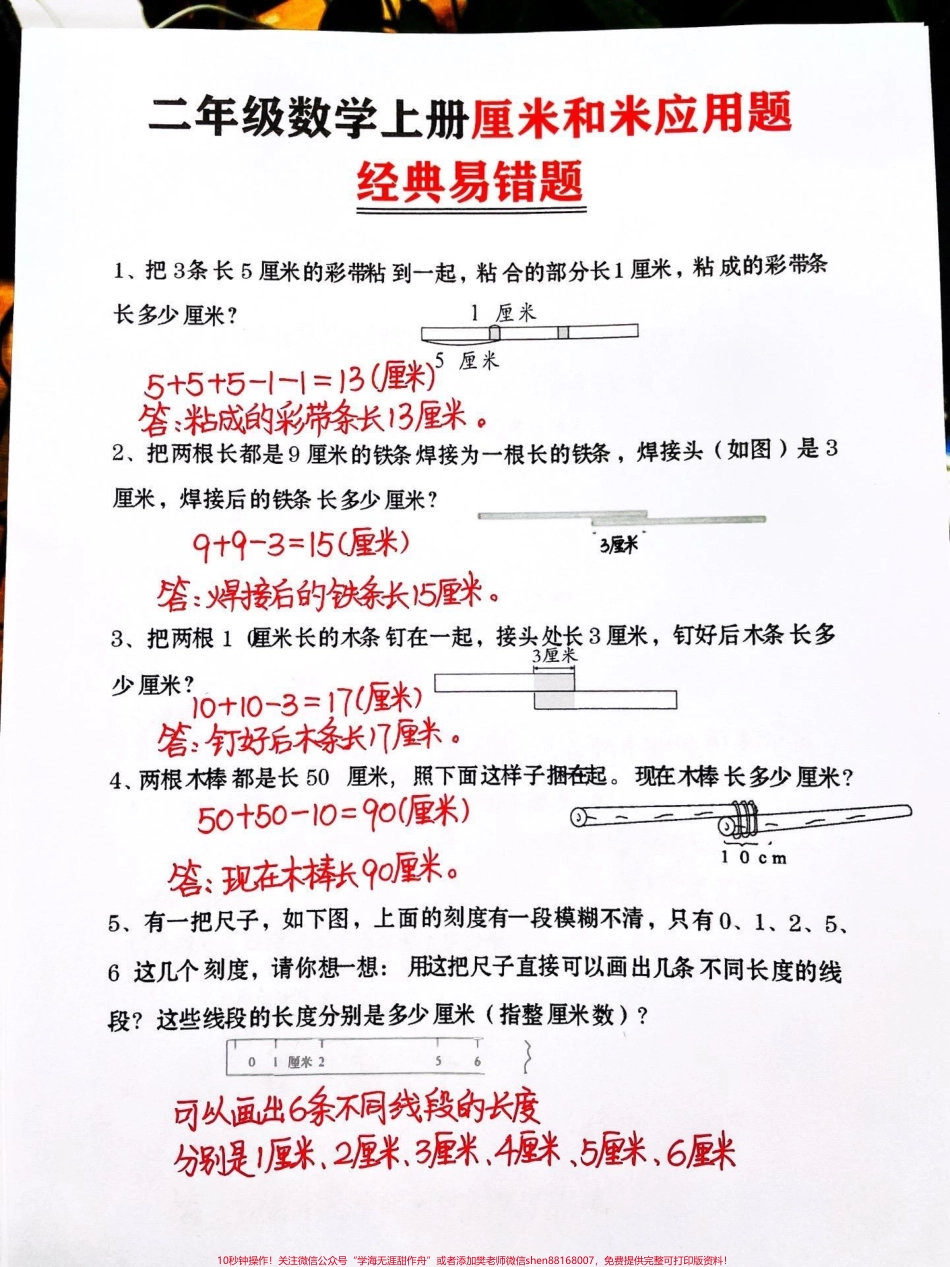 二年级数学上册厘米和米应用题
经典易错题
1、把3条长5厘米的彩带粘到一起，粘合的部分长1厘米，粘成的彩带条
长多少厘米？
1 厘米
5 厘米
5+5+5-1-1=13(厘米)
答:粘成的彩带条长13厘米。
2、把两根长都是9厘米的铁条焊接为一根长的铁条，焊接头（如图）是3
厘米，焊接后的铁条长多少厘米？
3厘米
9+9-3=15(厘米)
答:焊接后的铁条长15厘米。
3、把两根10厘米长的木条钉在一起，接头处长3厘米，钉好后木条长多
少厘米？
3厘米
10+10-3=17(厘米)
答:钉好后木条长17厘米。
4、两根木棒都是长50 厘米，照下面这样子捆在起。现在木棒长多少厘米？
50+50-10=90(厘米)
10cm
答:现在木棒长90厘米。
5、有一把尺子，如下图，上面的刻度有一段模糊不清，只有0、1、2、5、
6 这几个刻度，请你想一想：用这把尺子直接可以画出几条不同长度的线
段？这些线段的长度分别是多少厘米（指整厘米数）？
0 1 厘米 2 5 6
可以画出6条不同线段的长度
分别是1厘米、2厘米、3厘米、4厘米、5厘米、6厘米
10秒钟操作！关注微信公众号“学海无涯甜作舟”或者添加樊老师微信shen88168007，免费提供完整可打印版资料！